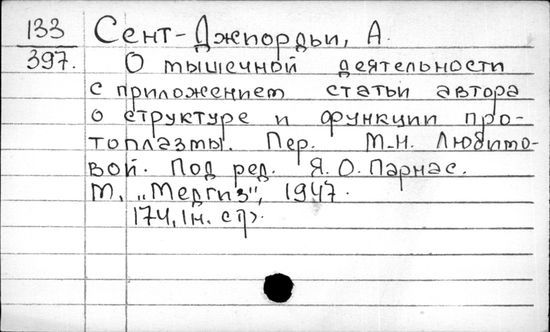 133
397.
Сент-Джпордьи, А.
О мышечной деятельности
с приложением статьи автора
о структуре и функции про-
топлазмы. Пер. М.Н. Любимо-
вой. Под ред. Я.О. Парнас.
М., „Медгиз", 1947.
174, 1н. стр.